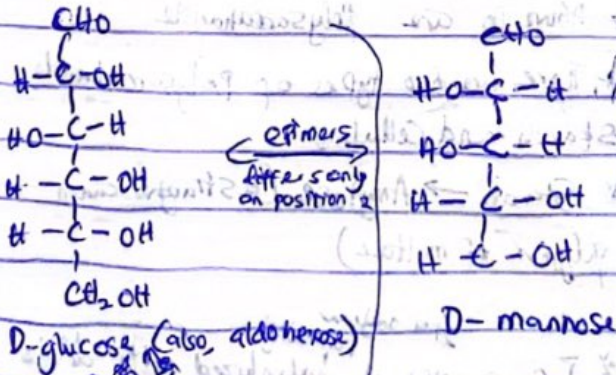 CHO
H-C-OH
HO-C-H
H-C-OH
H-C-OH
CH₂OH
D-glucose (also, aldohexose)
epimers
differs only
on position 2
CHO
HO-C-H
HO-C-H
H-C-OH
H C-OH
D-mannose